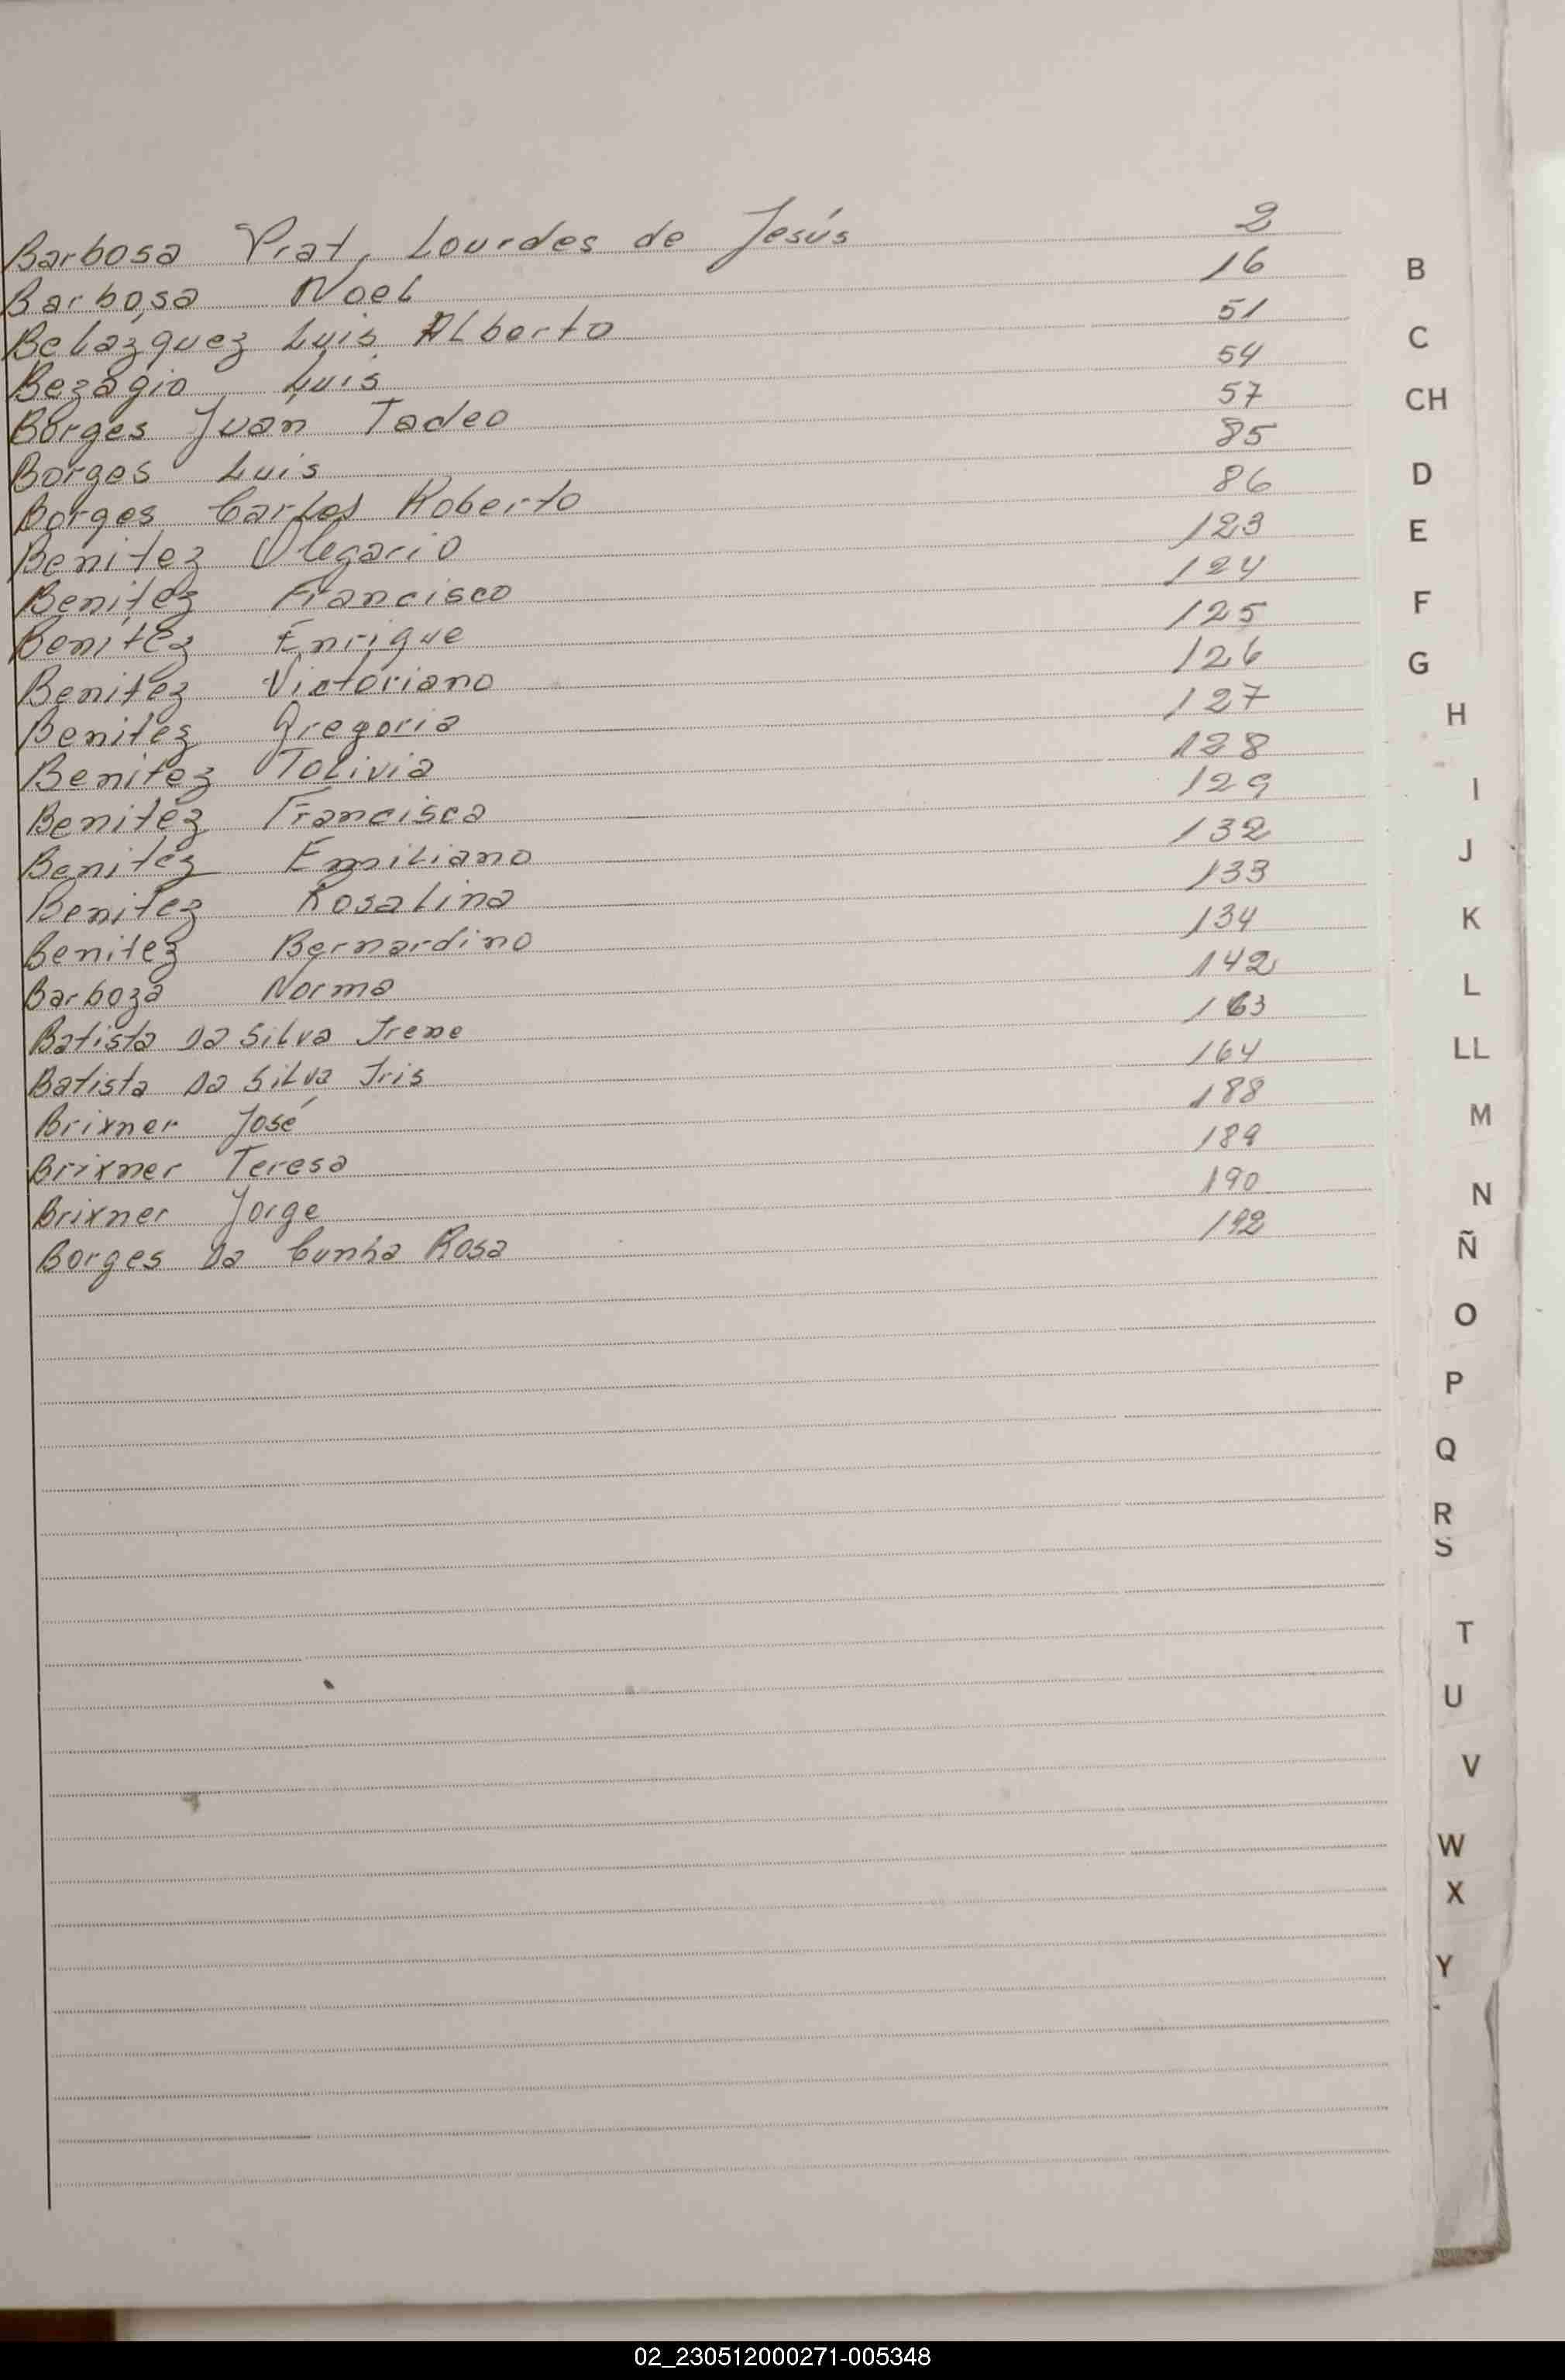 Barbosa Prat, Lourdes de Jesús 2
Barbosa Noel 16
Belazquez Luis Alberto 51
Bezagio Luis 54
Borges Juan Tadeo 57
Borges Luis 85
Borges Carlos Roberto 86
Benitez Olegario 123
Benitez Francisco 124
Benitez Enrique 125
Benitez Victoriano 126
Benitez Gregoria 127
Benitez Tolivia 128
Benitez Francisca 129
Benitez Emiliano 132
Benitez Rosalina 133
Benitez Bernardino 134
Barboza Norma 142
Batista Da Silva Irene 163
Batista Da Silva Iris 164
Brixner José 188
Brixner Teresa 189
Brixner Jorge 190
Borges Da Cunha Rosa 192
B
C
CH
D
E
F
G
H
I
J
K
L
LL
M
N
Ñ
O
P
Q
R
S
T
U
V
W
X
Y
02_230512000271-005348